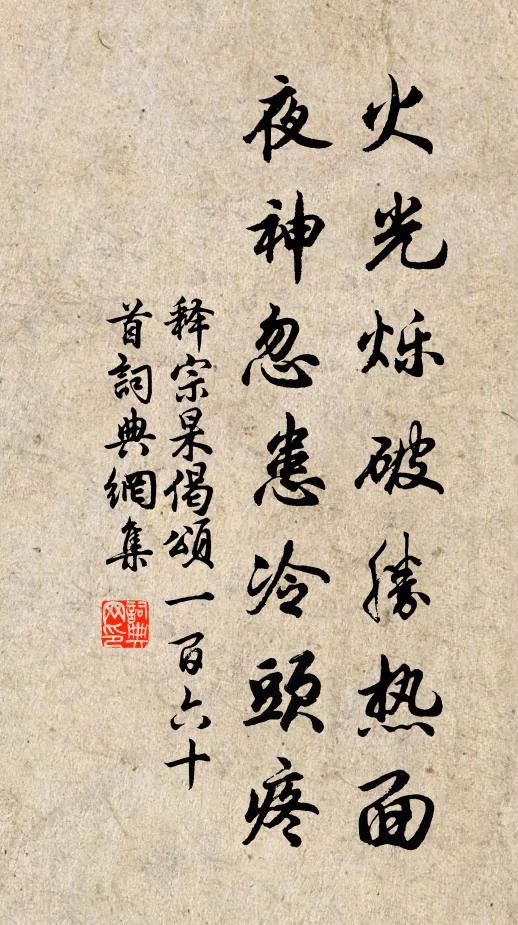 火光烁破胜热面
夜神忽患冷頭疼
释宗杲偈颂一百六十
首詞典網集
詞典
网印